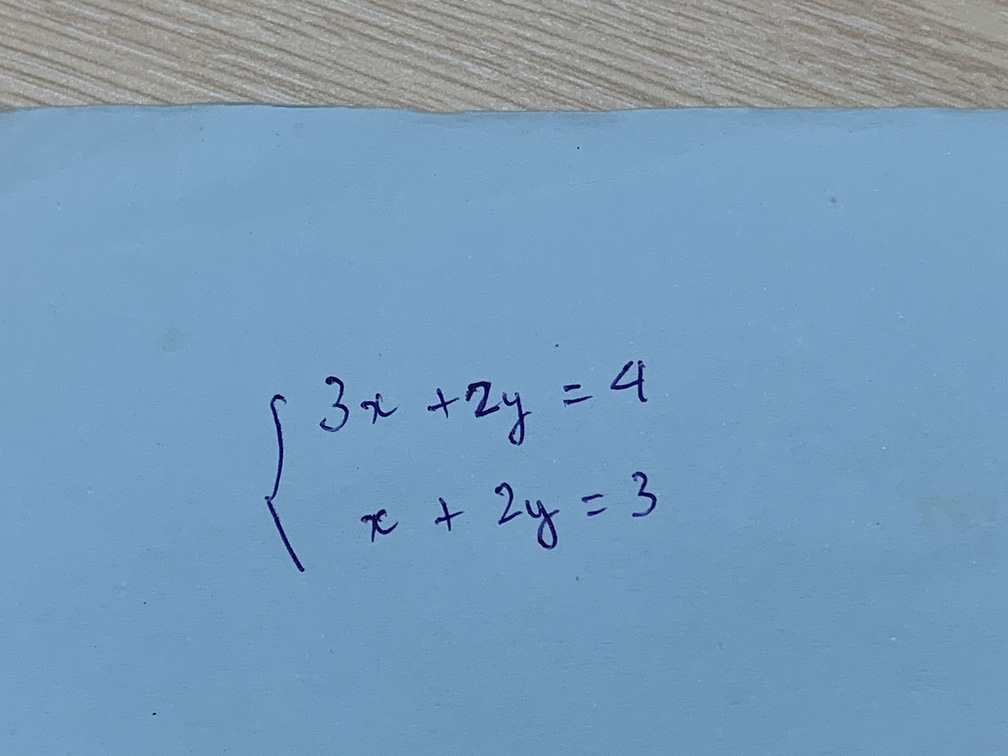 3x + 2y = 4
x + 2y = 3